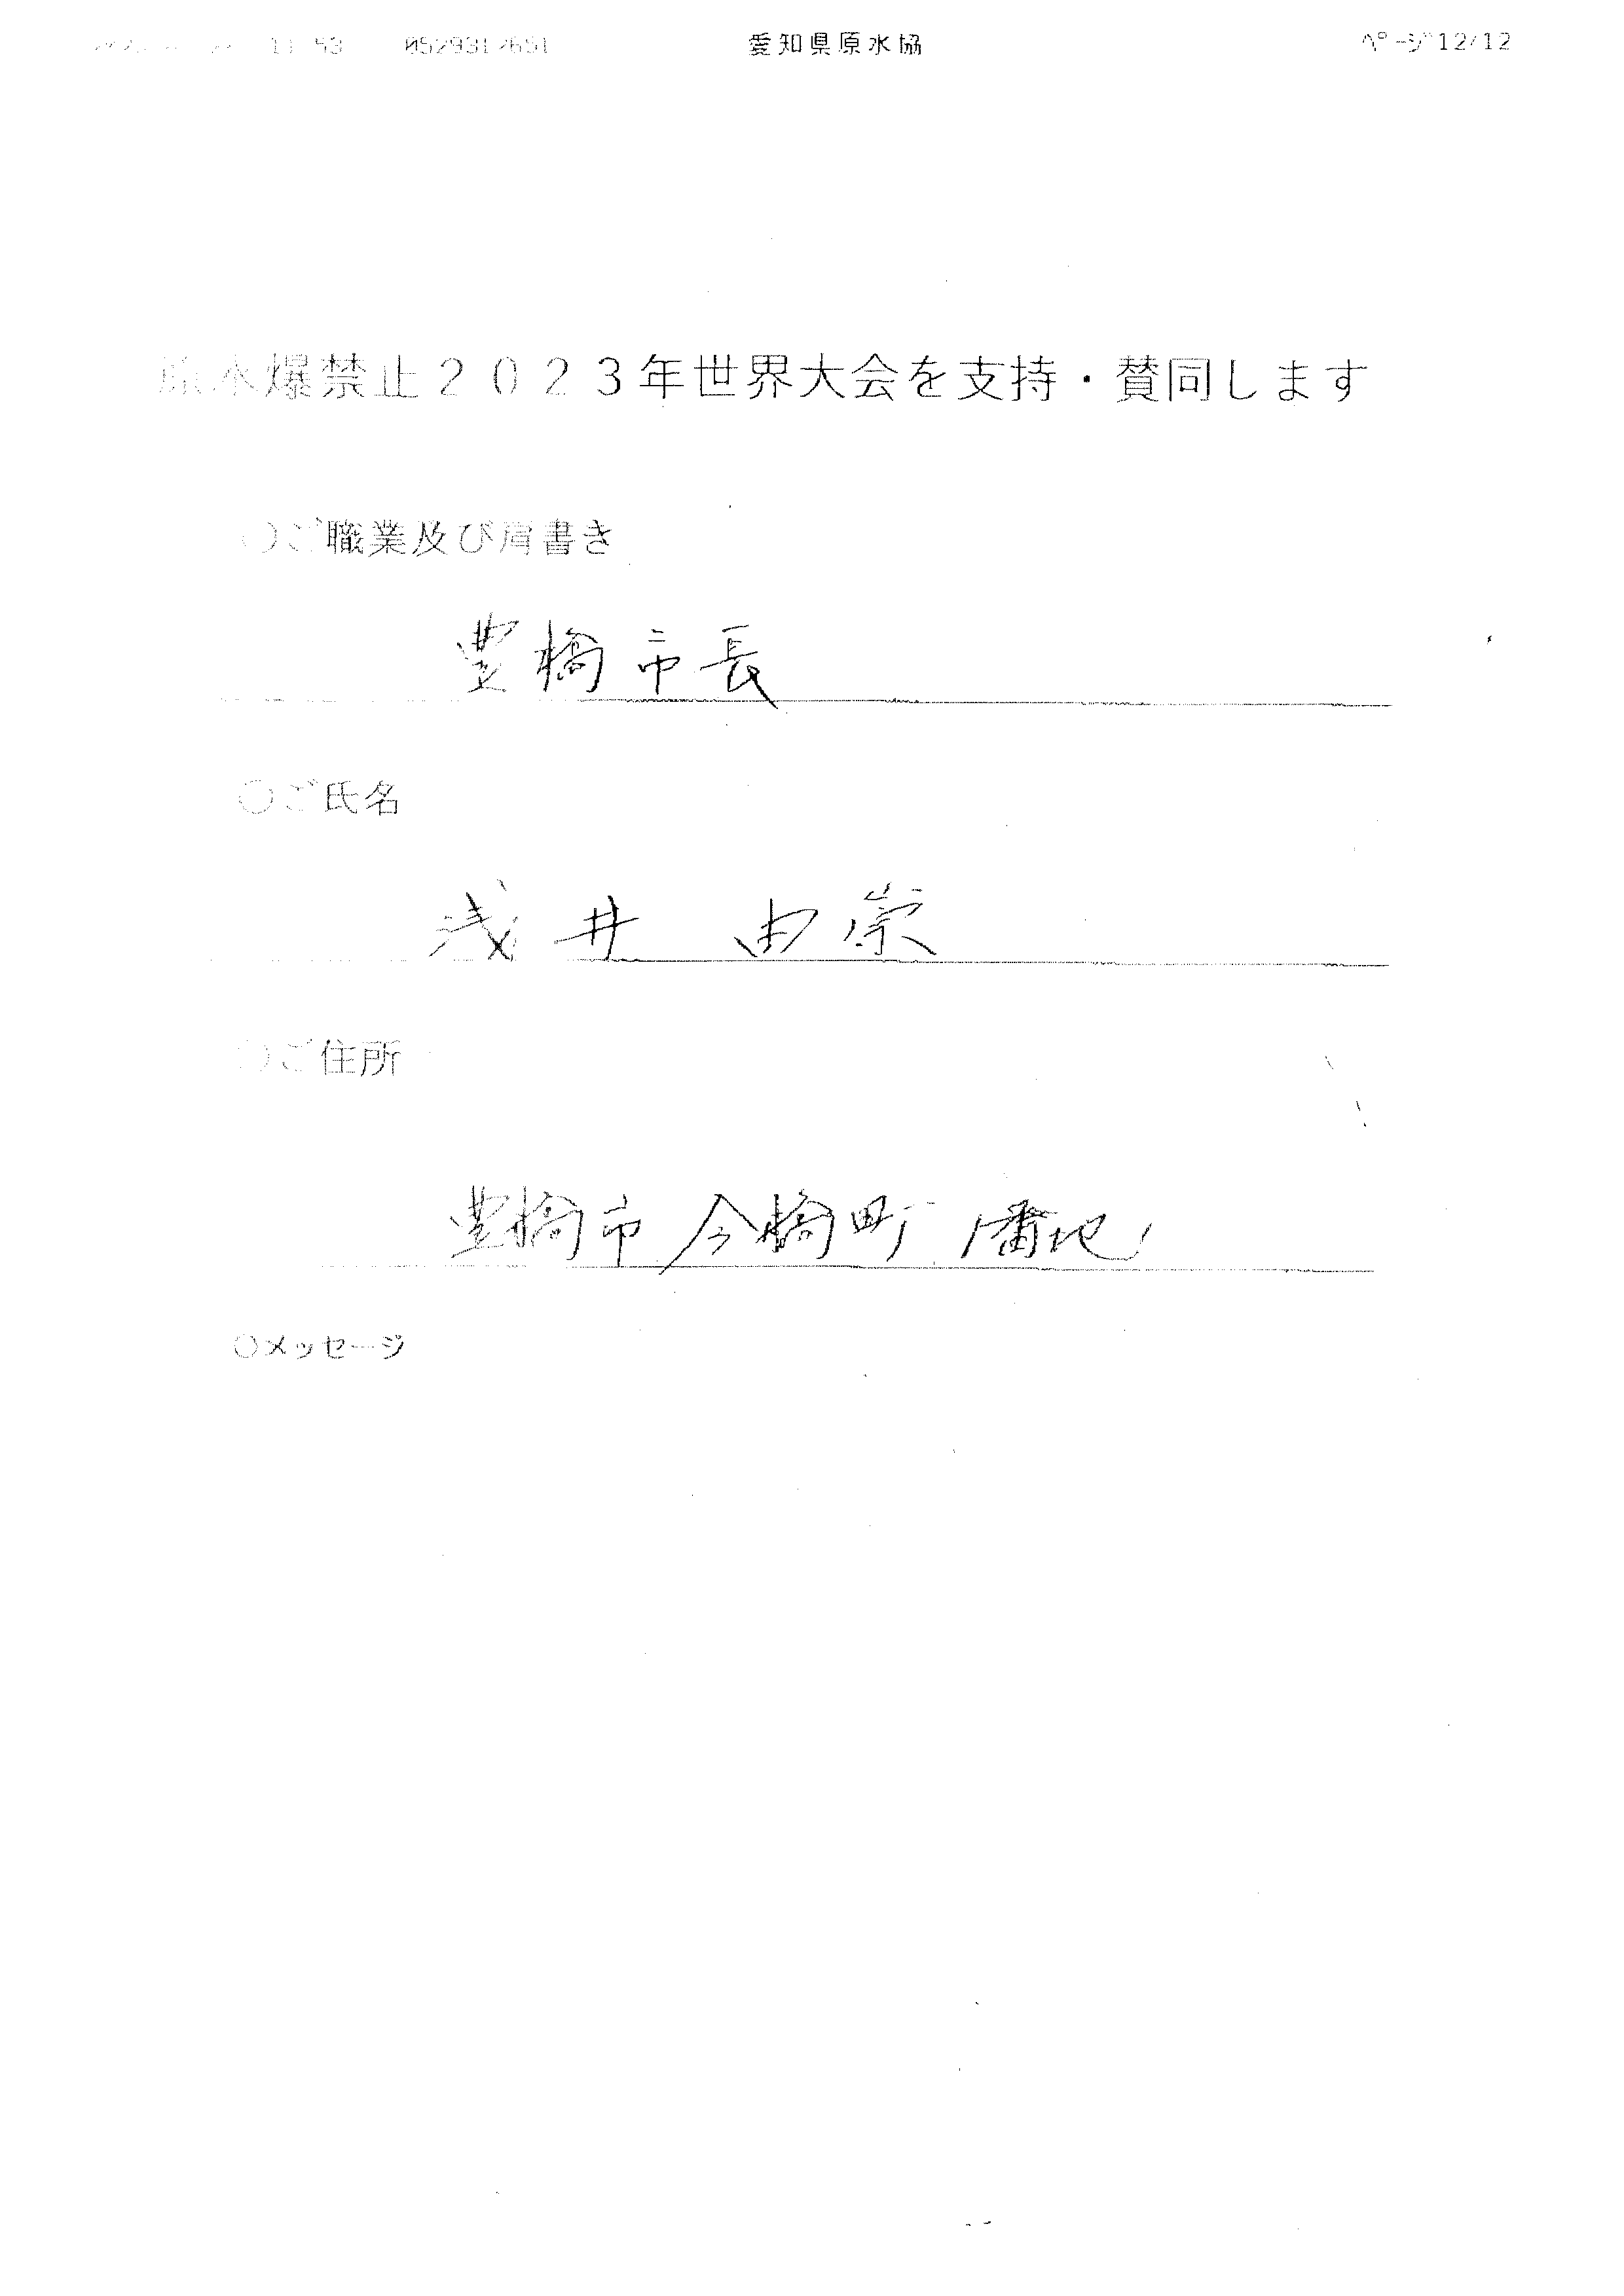 11 53 0529312651 愛知県原水協 ページ12/12
原水爆禁止2023年世界大会を支持・賛同します
○ご職業及び肩書き
豊橋市長
○ご氏名
浅井 由崇
○ご住所
豊橋市今橋町1番地
○メッセージ